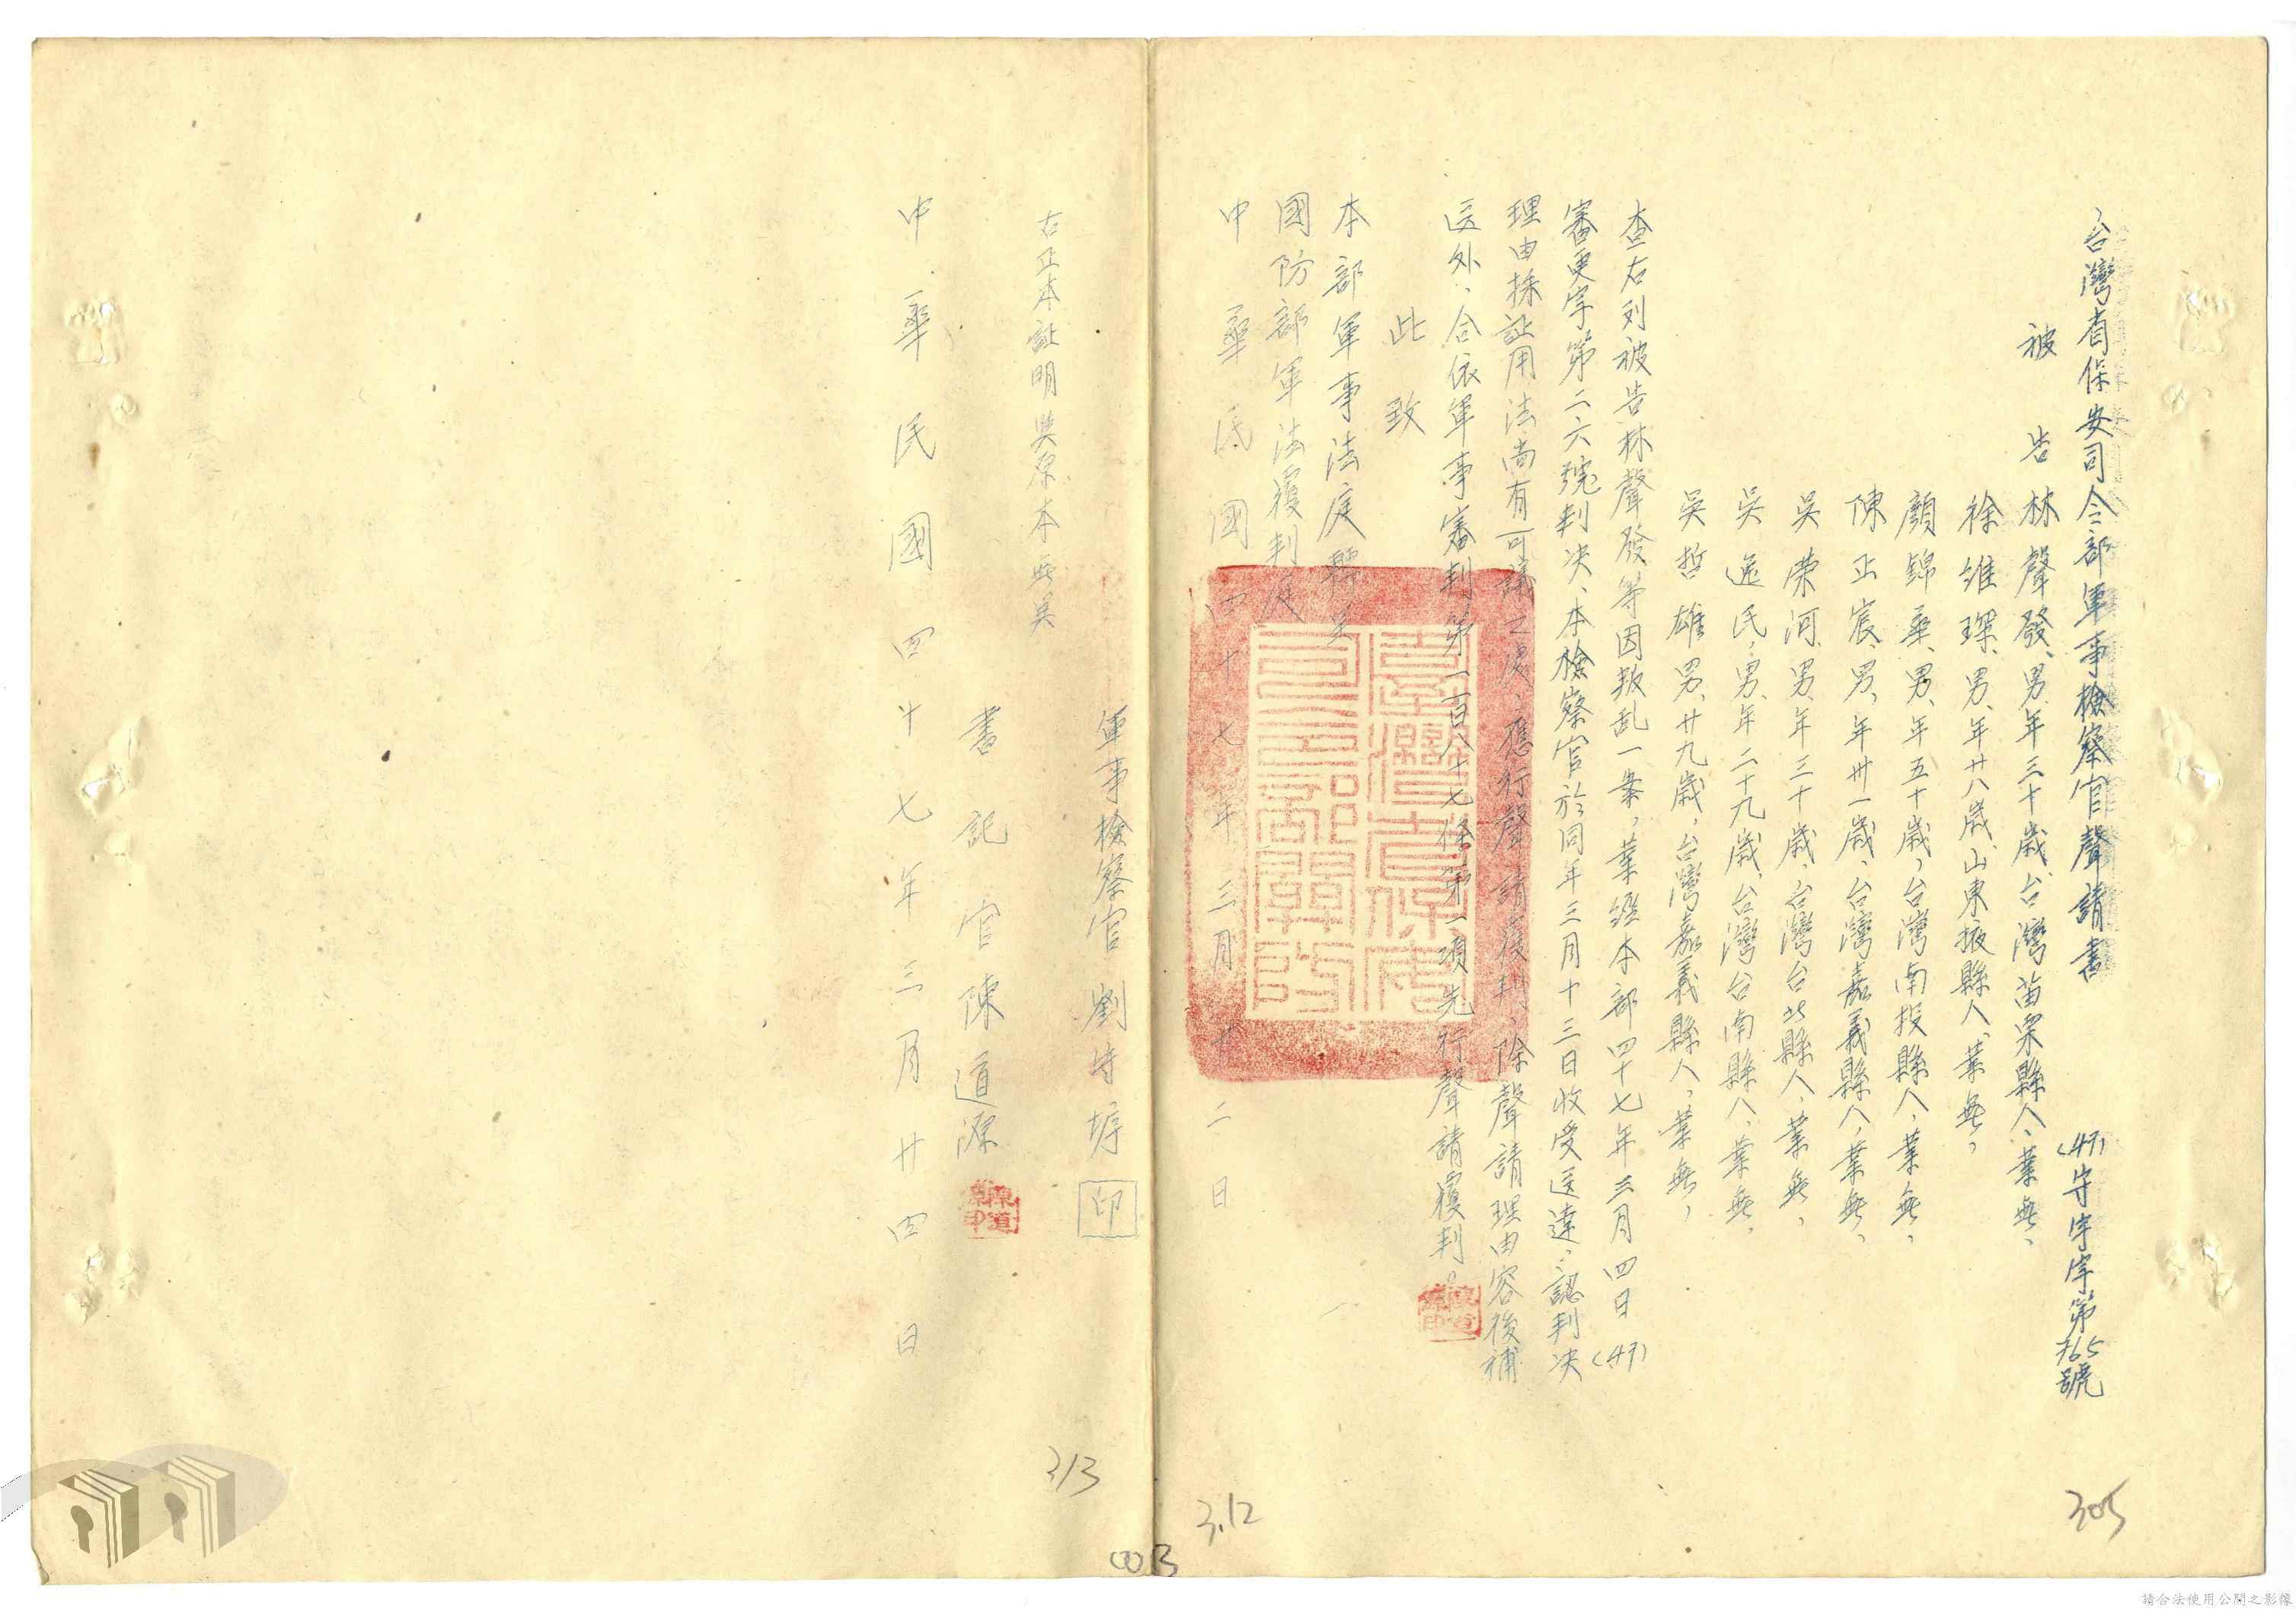 台灣省保安司令部軍事檢察官聲請書
(47)守字第765號
被告 林聲發、男、年三十歲、台灣苗栗縣人、業無、
徐維琛、男、年廿八歲、山東掖縣人、業無、
顏錦華、男、年五十歲、台灣南投縣人、業無、
陳正宸、男、年卅一歲、台灣嘉義縣人、業無、
吳荣河、男、年三十歲、台灣台北縣人、業無、
吳逸民、男、年二十九歲、台灣台南縣人、業無、
吳哲雄、男、廿九歲、台灣嘉義縣人、業無、
查右列被告林聲發等因叛乱一案，業經本部四十七年三月四日(47)
審更字第二六號判决、本檢察官於同年三月十三日收受送達，認判决
理由採証用法尚有可議之處、應行聲請覆判、除聲請理由容後補
送外、合依軍事審判第一百八十七條第一項先行聲請覆判。
此致
本部軍事法庭轉呈
國防部軍法覆判庭
中華民國四十七年三月十二日
軍事檢察官 劉守塝 印
右正本証明與原本無異
書記官 陳道源
陳道源印
中華民國四十七年三月廿四日
305
3.12
313
0013
請合法使用公開之影像